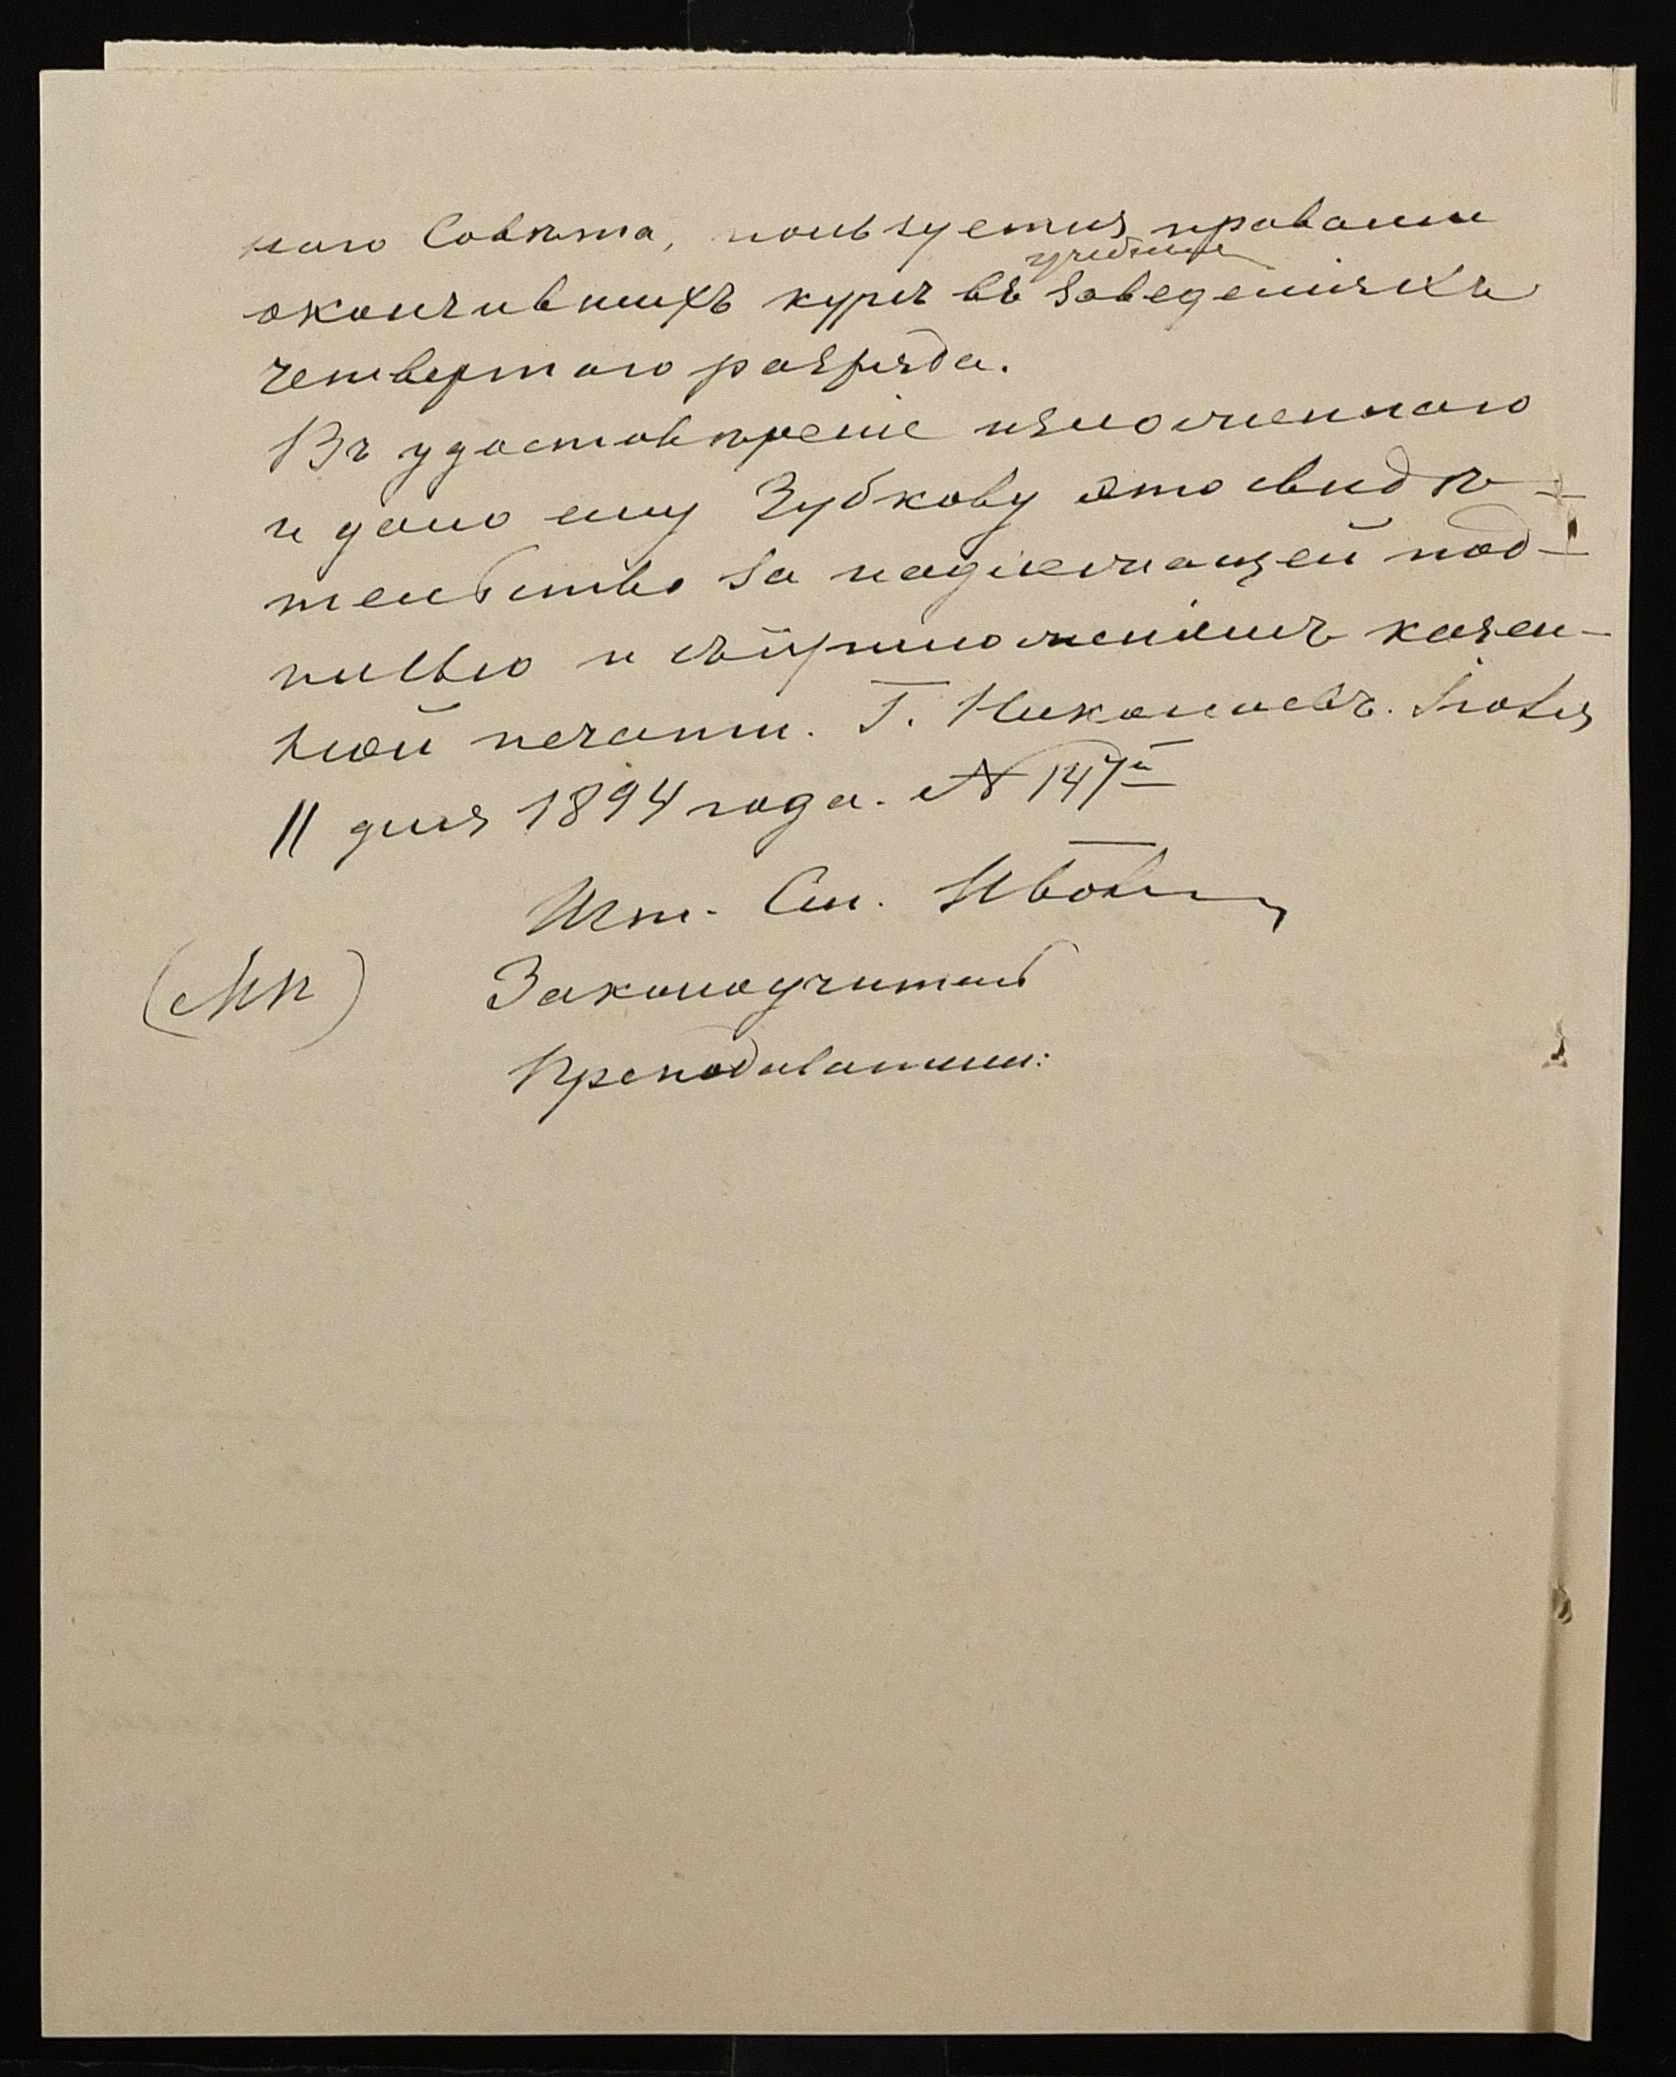 наго Совѣта, пользуется правами
учебных
окончившихъ курсъ въ заведеніяхъ
четвертаго разряда.
Въ удостовѣреніе изложеннаго
и дано ему Зубкову это свидѣ-
тельство за надлежащей под-
писью и съ приложеніемъ казен-
ной печати. Г. Николаевъ. Іюля
11 дня 1894 года. № 147й
Шт. См.
(МП) Законоучитель
Преподаватели: